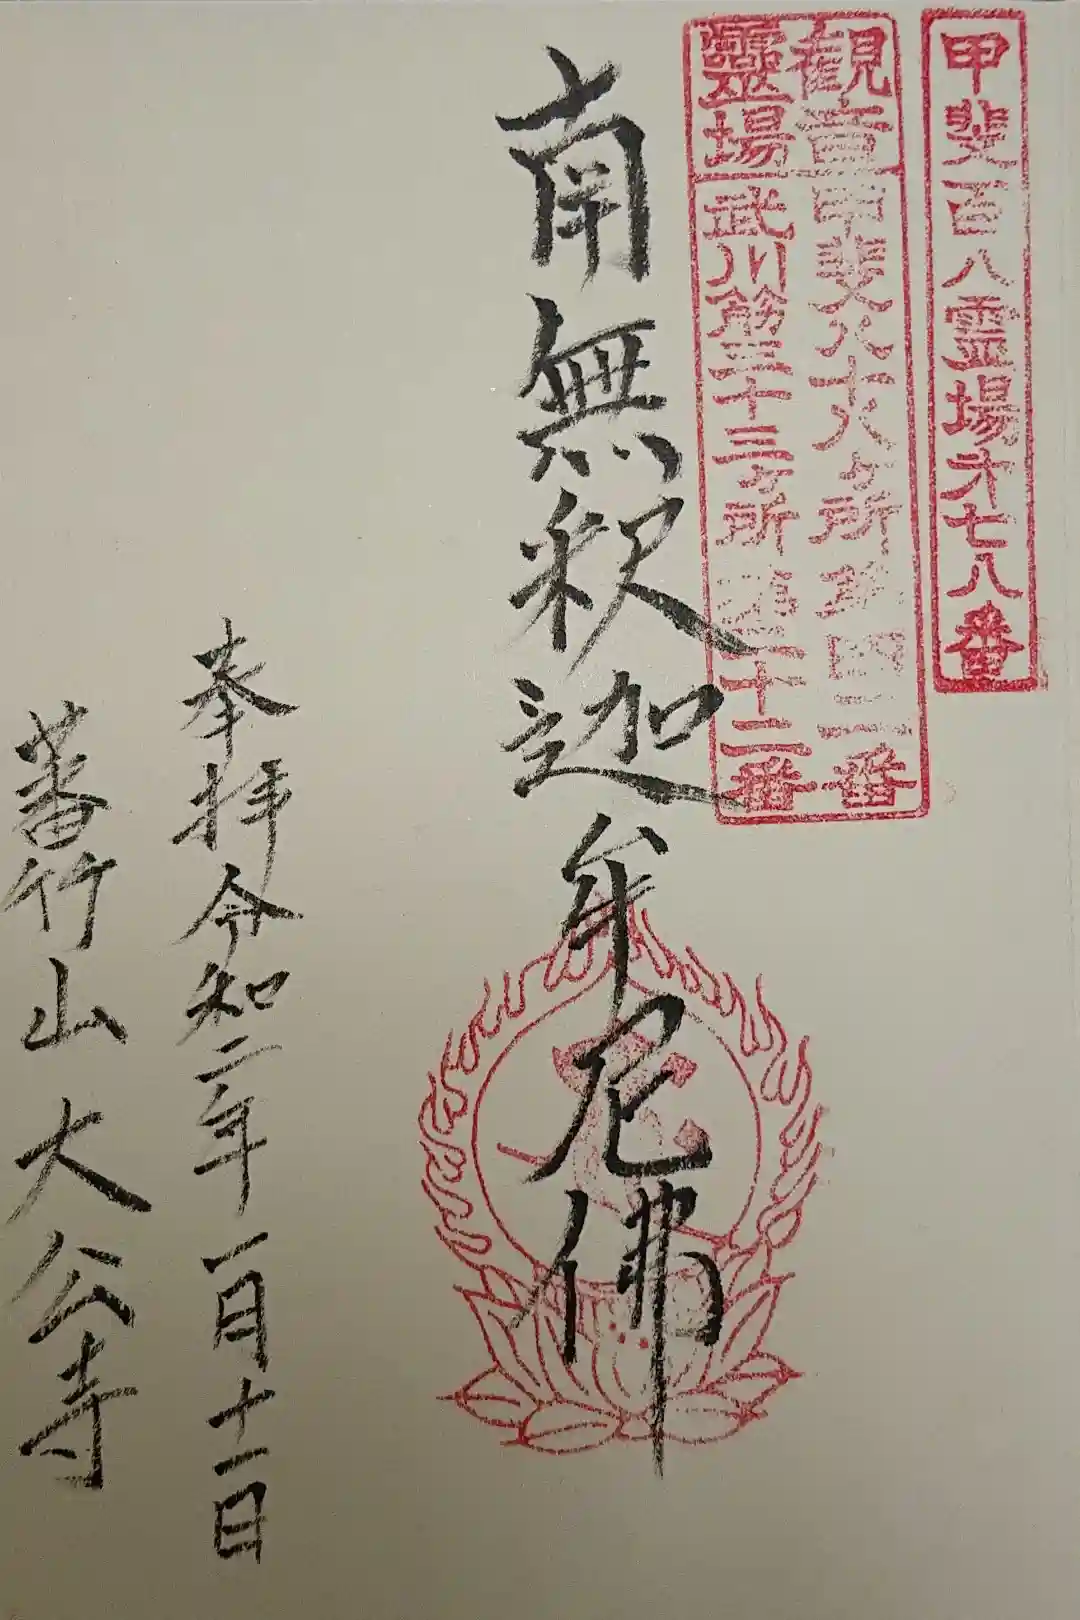 甲斐百八霊場才七八番
観音
靈場
甲斐八十八ヶ所第四二番
武川筋三十三ヶ所第二十二番
南無釈迦牟尼佛
奉拝令和二年一月十一日
蕃竹山大公寺